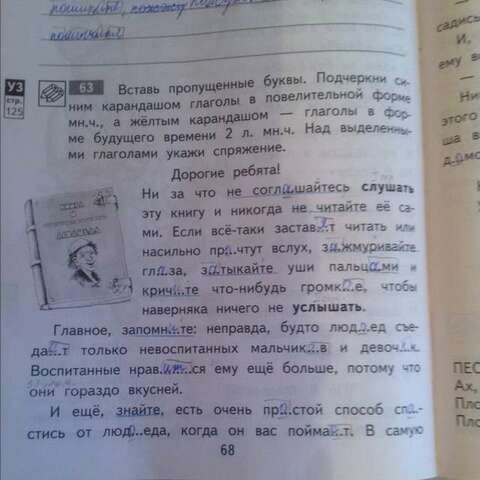 УЗ
стр.
125
63 Вставь пропущенные буквы. Подчеркни си-
ним карандашом глаголы в повелительной форме
мн.ч., а жёлтым карандашом — глаголы в фор-
ме будущего времени 2 л. мн.ч. Над выделенны-
ми глаголами укажи спряжение.
Дорогие ребята!
Ни за что не соглашайтесь слушать
эту книгу и никогда не читайте её са-
ми. Если всё-таки застав..т читать или
насильно пр..чтут вслух, зажмуривайте
глаза, затыкайте уши пальцами и
крич..те что-нибудь громк..е, чтобы
наверняка ничего не услышать.
Главное, запомн..те: неправда, будто люд..ед съе-
да..т только невоспитанных мальчик..в и девоч..к.
Воспитанные нравятся ему ещё больше, потому что
они гораздо вкусней.
И ещё, знайте, есть очень пр..стой способ спа-
стись от люд..еда, когда он вас пойма..т. В самую
68
садись
И,
ему в
Ни
этого
ша в
ПЕС
Ах,
Пло
Пло